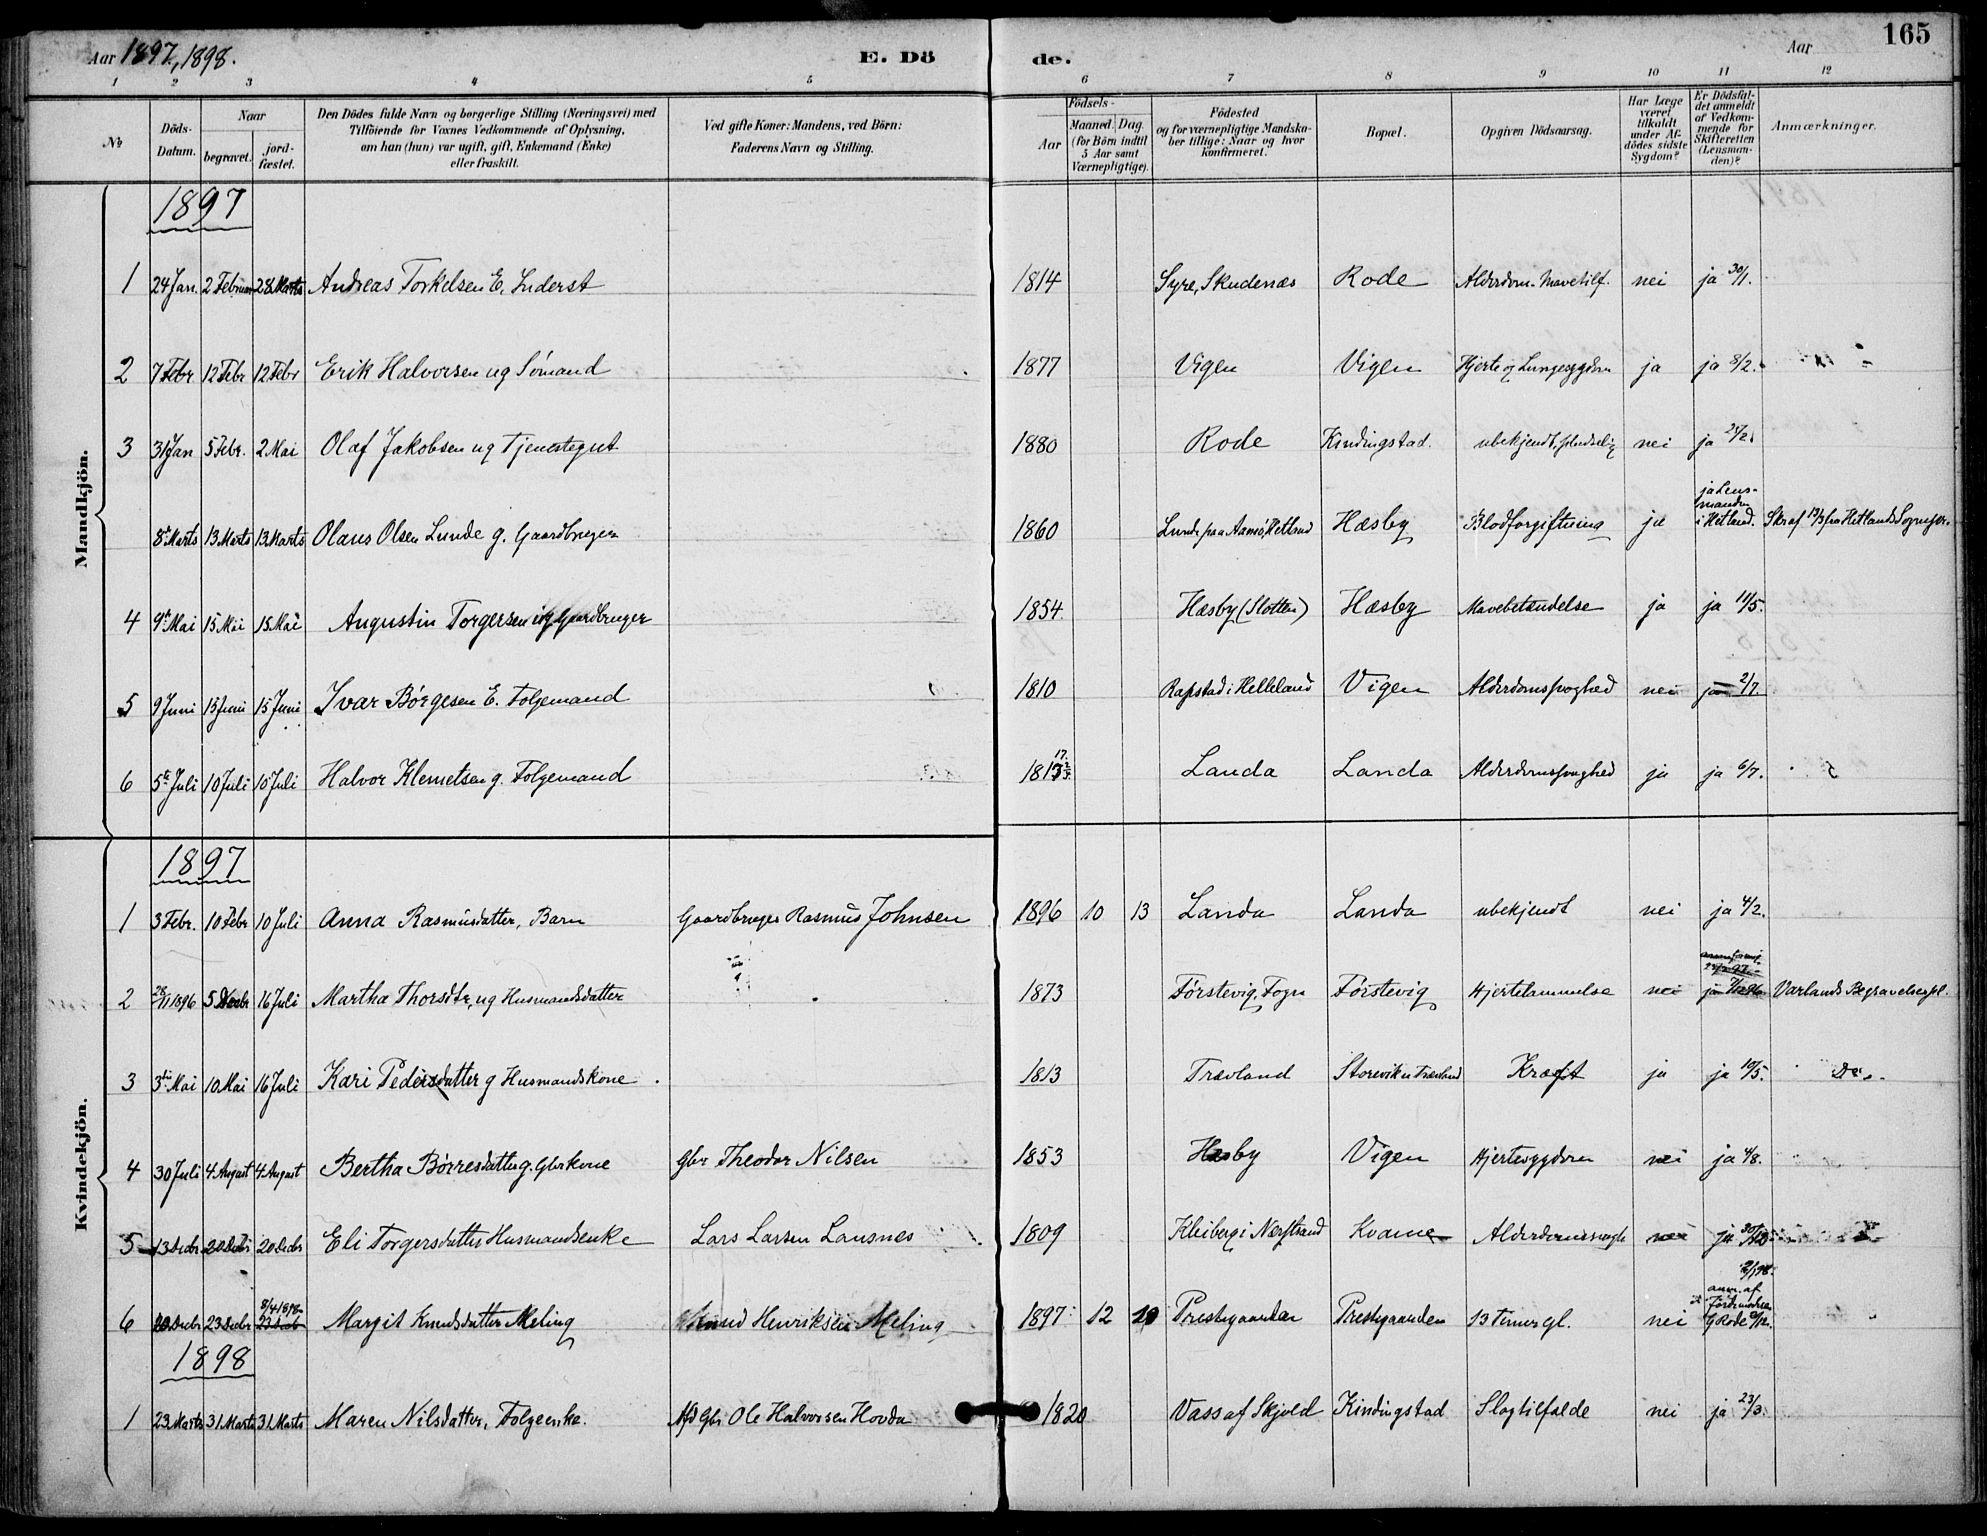 Aar 1897, 1898.
E. Dö
de.
Aar
165
1 2 3 4 5 6 7 8 9 10 11 12
No
Döds-Datum.
Naar
begravet.
jord-fæstet.
Den Dödes fulde Navn og borgerlige Stilling (Næringsvei) med
Tilföiende for Voxnes Vedkommende af Oplysning,
om han (hun) var ugift, gift, Enkemand (Enke)
eller fraskilt.
Ved gifte Koner: Mandens, ved Börn:
Faderens Navn og Stilling.
Födsels-
Aar
Maaned. Dag.
(for Börn indtil
5 Aar samt
Værnepligtige).
Födested
og for værnepligtige Mandska-
ber tillige: Naar og hvor
konfirmeret.
Bopæl.
Opgiven Dödsaarsag.
Har Læge
været
tilkaldt
under Af-
dödes sidste
Sygdom?
Er Dödsfal-
det anmeldt
af Vedkom-
mende for
Skifteretten
(Lensman-
den)?
Anmærkninger.
Mandkjön.
1897
1 24 Jan. 2 Februar 28 Marts Andreas Torkelsen E. Inderst 1814 Syre, Skudenæs Rode Alderdom. Mavetilf. nei ja 30/1.
2 7 Febr 12 Febr 12 Febr Erik Halvorsen ug Sömand 1877 Vigen Vigen Hjerte og Lungesygdom ja ja 8/2.
3 31 Jan 5 Febr. 2 Mai Olaf Jakobsen ug Tjenstegut 1880 Rode Kindingstad. ubekjendt, pludselig nei ja
8 Marts 13 Marts 13 Marts Olaus Olsen Lunde g. Gaardbruger 1860 Lunde paa Aamö, Hetland Hæsby Blodforgiftning ja ja Lens-
manden
i Hetland. Skr af 19/3 fra Hetlands Sognepr.
4 9 Mai 15 Mai 15 Mai Augustin Torgersen ug Gaardbruger 1854 Hæsby (Slotten) Hæsby Mavebetændelse ja ja 11/5.
5 9 Juni 15 Juni 15 Juni Ivar Börgesen E. Folgemand 1810 Rapstad i Helleland Vigen Alderdomssvaghed nei ja 2/7.
6 5te Juli 10 Juli 10 Juli Halvor Klemetsen g. Folgemand Landa Landa Alderdomssvaghed ja ja 6/7.
Kvindekjön.
1897
1 3 Febr. 10 Febr 10 Juli Anna Rasmusdatter, Barn Gaardbruger Rasmus Johnsen 1896 10 13 Landa Landa ubekjendt nei ja 4/2.
2 28/11 1896 5 Decbr 16 Juli Martha Thorsdtr, ug Husmandsdatter 1873 Förstevig, Fogn Förstevig Hjertelammelse nei ja Varlands Begravelsespl.
3 3die Mai 10 Mai 16 Juli Kari Pedersdatter g Husmandskone 1813 Trævland Storevik u Trævland Kræft ja ja 10/5. Do.
4 30 Juli 4 August 4 August Bertha Börresdatter g. Gbrkone Gbr Theodor Nilsen 1853 Hæsby Vigen Hjertesygdom nei ja 4/8.
5 13 Decbr 20 Decbr 20 Decbr Eli Torgersdatter Husmandsenke Lars Larsen Lausnes 1809 Kleiberg i Nærstrand Kvame Alderdomssvagh nei ja 30/12
6 20 Decbr 23 Decbr 8/4 1898 23 Decb Margit Knudsdatter Meling Knud Henriksen Meling 1897 12 Prestegaarden Prestegaarden 13 Timer gl. nei
anm. af
Rode
1898
1 23 Marts 31 Marts 31 Marts Maren Nilsdatter, Folgeenke. Afd Gbr Ole Halvorsen Hovda 1820 Vass af Skjold Kindingstad Slagtilfælde nei ja 23/3.